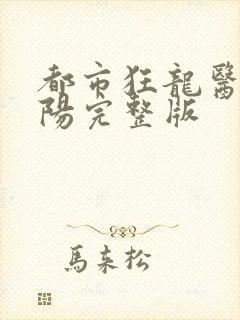 都市狂龍醫
陽完整版
馬來松